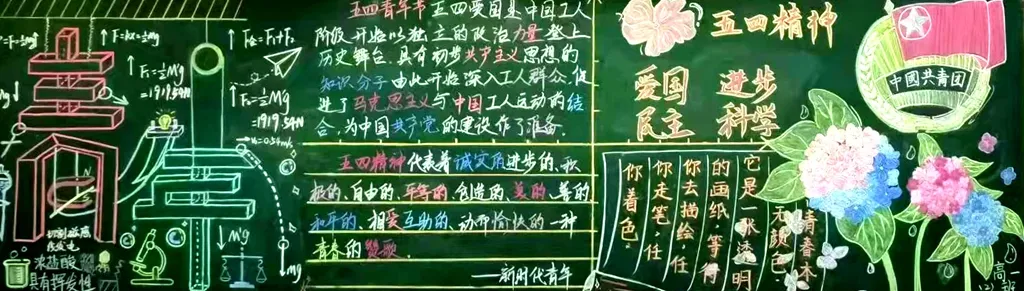 F=kx=½mg
F₁=½Mg
=1919.54N
浓盐酸
具有挥发性
F₂=½Mg
=1919.54N
↓Mg
mg
五四青年节 五四爱国是中国工人
阶级开始以独立的政治力量登上
历史舞台.具有初步共产主义思想的
知识分子由此开始深入工人群众.促
进了马克思主义与中国工人运动的结
合,为中国共产党的建设作了准备.
五四精神代表着诚实质进步的、积
极的、自由的、平等的、创造的、美的、善的、
和平的、相爱互助的、动而愉快的一种
青春的赞歌.
——新时代青年
五四精神
爱国 进步
民主 科学
中國共青团
青春本
无颜色.
它是一张透明
的画纸.等待
你去描绘.任
你走笔.任
你着色.
高一
(2)班